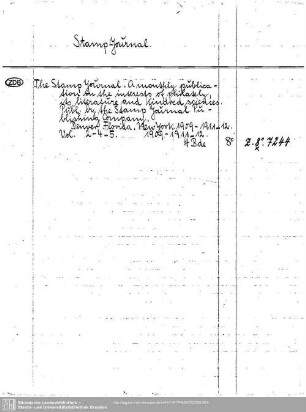 Stamp-Journal.
ZDB
The Stamp Journal. A monthly publica-
tion in the interests of philately,
its literature and kindred sciences.
Publ. by the Stamp Journal Pu-
blishing Company.
Denver, Florida, New York, 1909-1911-12.
Vol. 2-4-5. 1909-1911-12.
4 Bde 8° 2. 8° 7244
Sächsische Landesbibliothek -
Staats- und Universitätsbibliothek Dresden